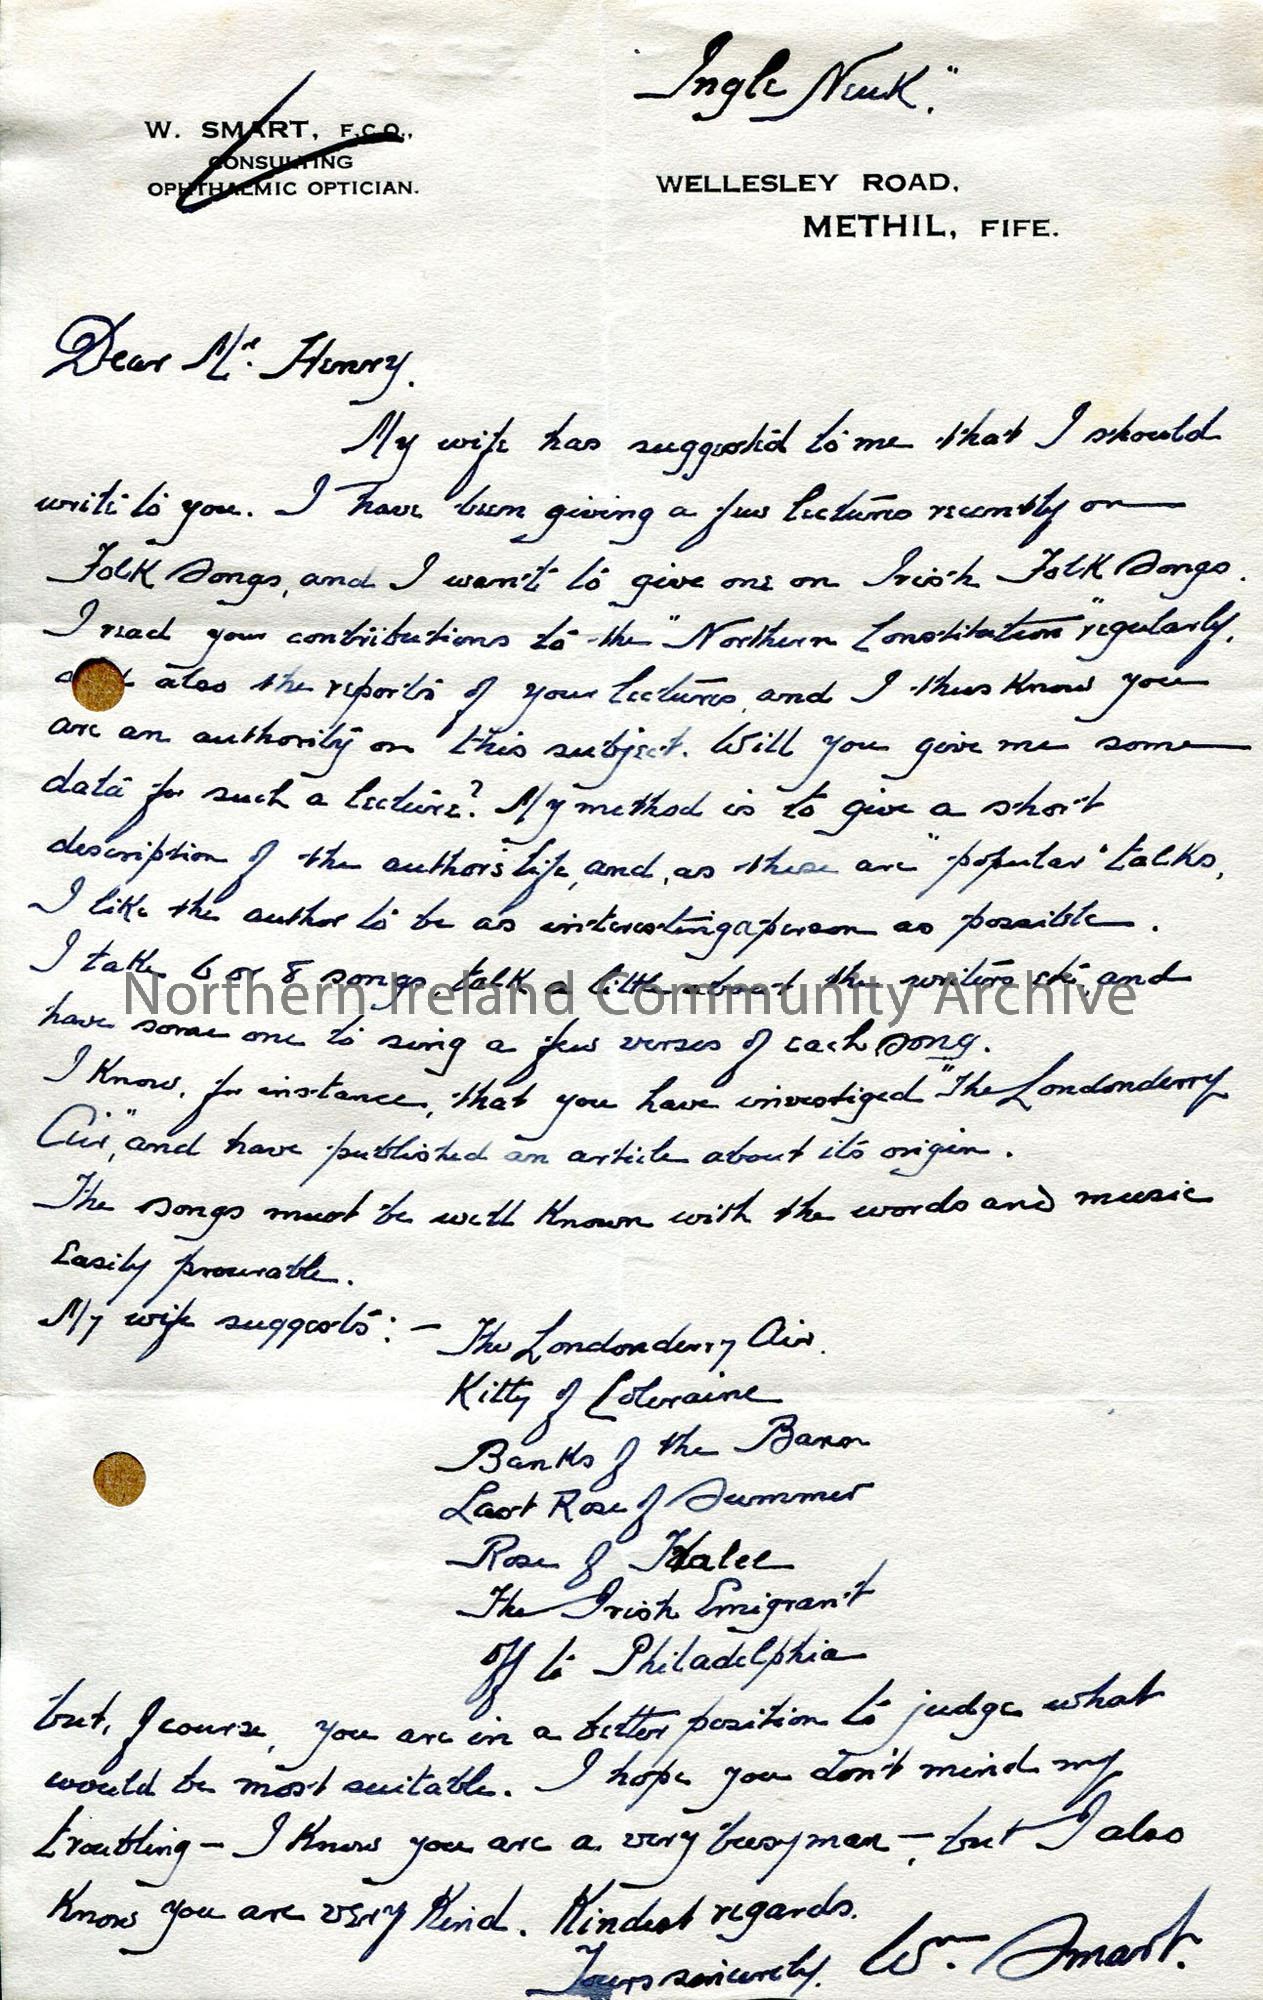 "Ingle Neuk".
W. SMART, F.C.O.,
CONSULTING
OPHTHALMIC OPTICIAN.
WELLESLEY ROAD,
METHIL, FIFE.
Dear Mr. Henry.
My wife has suggested to me that I should
write to you. I have been giving a few lectures recently on
Folk Songs, and I want to give one on Irish Folk Songs.
I read your contributions to the "Northern Constitution" regularly,
also the reports of your lectures, and I thus know you
are an authority on this subject. Will you give me some
data for such a lecture? My method is to give a short
description of the author's life, and, as these are "popular" talks,
I like the author to be as interesting a person as possible.
I take 6 or 8 songs, talk a little about the writers etc, and
Northern Ireland Community Archive
have some one to sing a few verses of each song.
I know, for instance, that you have investiged "The Londonderry
Air", and have published an article about its origin.
The songs must be well known with the words and music
easily procurable.
My wife suggests: — The Londonderry Air.
Kitty of Coleraine
Banks of the Bann
Last Rose of Summer
Rose of Tralee
The Irish Emigrant
Off to Philadelphia
but, of course, you are in a better position to judge what
would be most suitable. I hope you don't mind my
troubling — I know you are a very busy man —, but I also
know you are very kind. Kindest regards.
Yours sincerely, Wm. Smart.